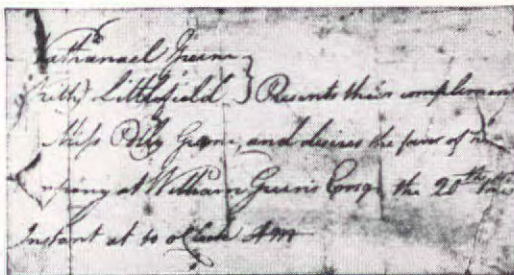 Nathanael Greene
Caty Littlefield } Presents their complement
Miss Polly Greene, and desires the favor of
at William Greene's Esqr the 20th
Instant at 10 oClock AM